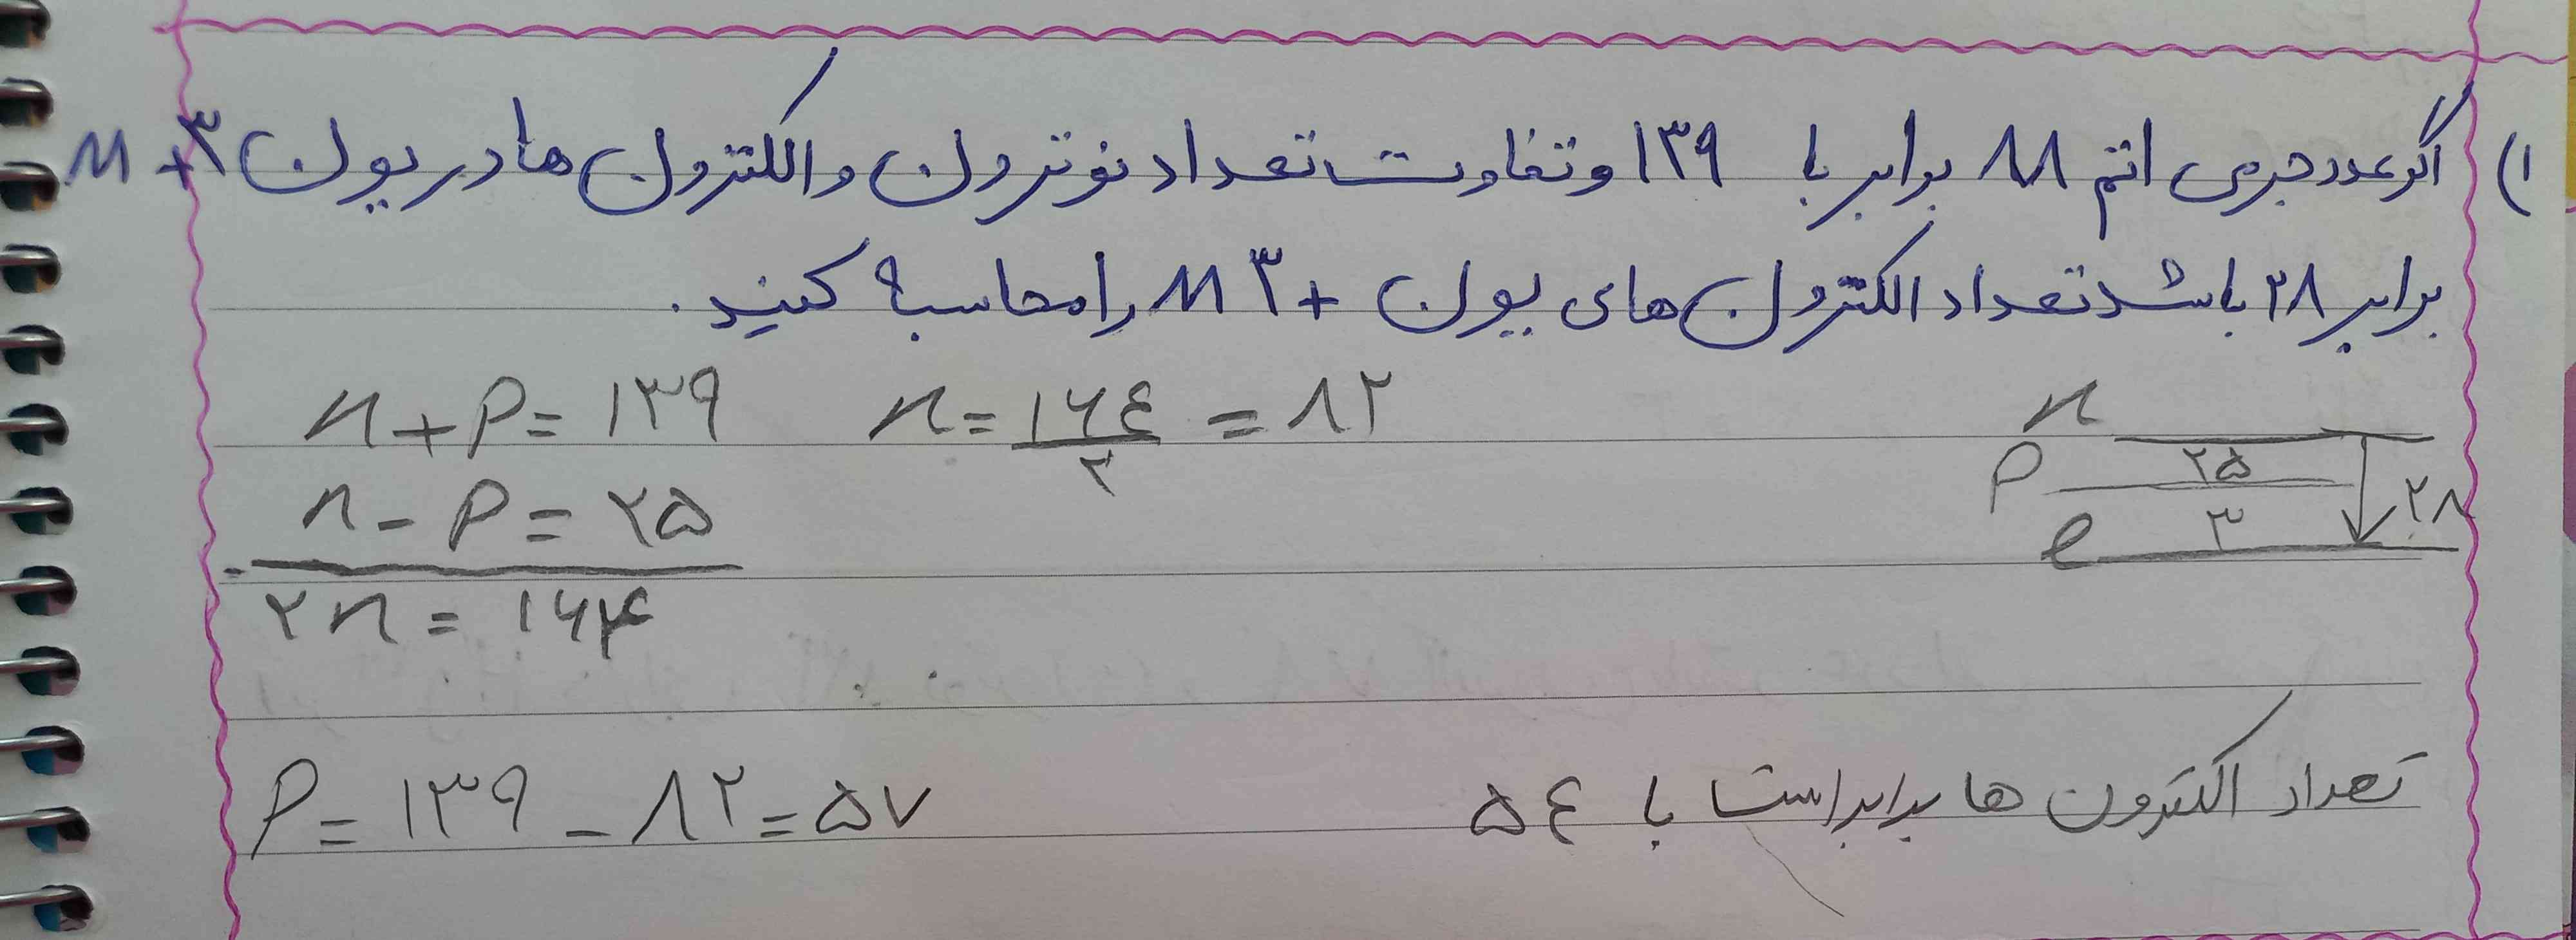 ۱) اگر عدد جرمی اتم M برابر با ۱۳۹ و تفاوت تعداد نوترون و الکترون ها در یون M ۳+
برابر ۲۸ باشد تعداد الکترون های یون M ۳+ را محاسبه کنید.
n
p ۲۵
e ۳
۲۸
n + p = ۱۳۹
n - p = ۲۵
۲n = ۱۶۴
n = ۱۶۴/۲ = ۸۲
p = ۱۳۹ - ۸۲ = ۵۷
تعداد الکترون ها برابر است با ۵۴